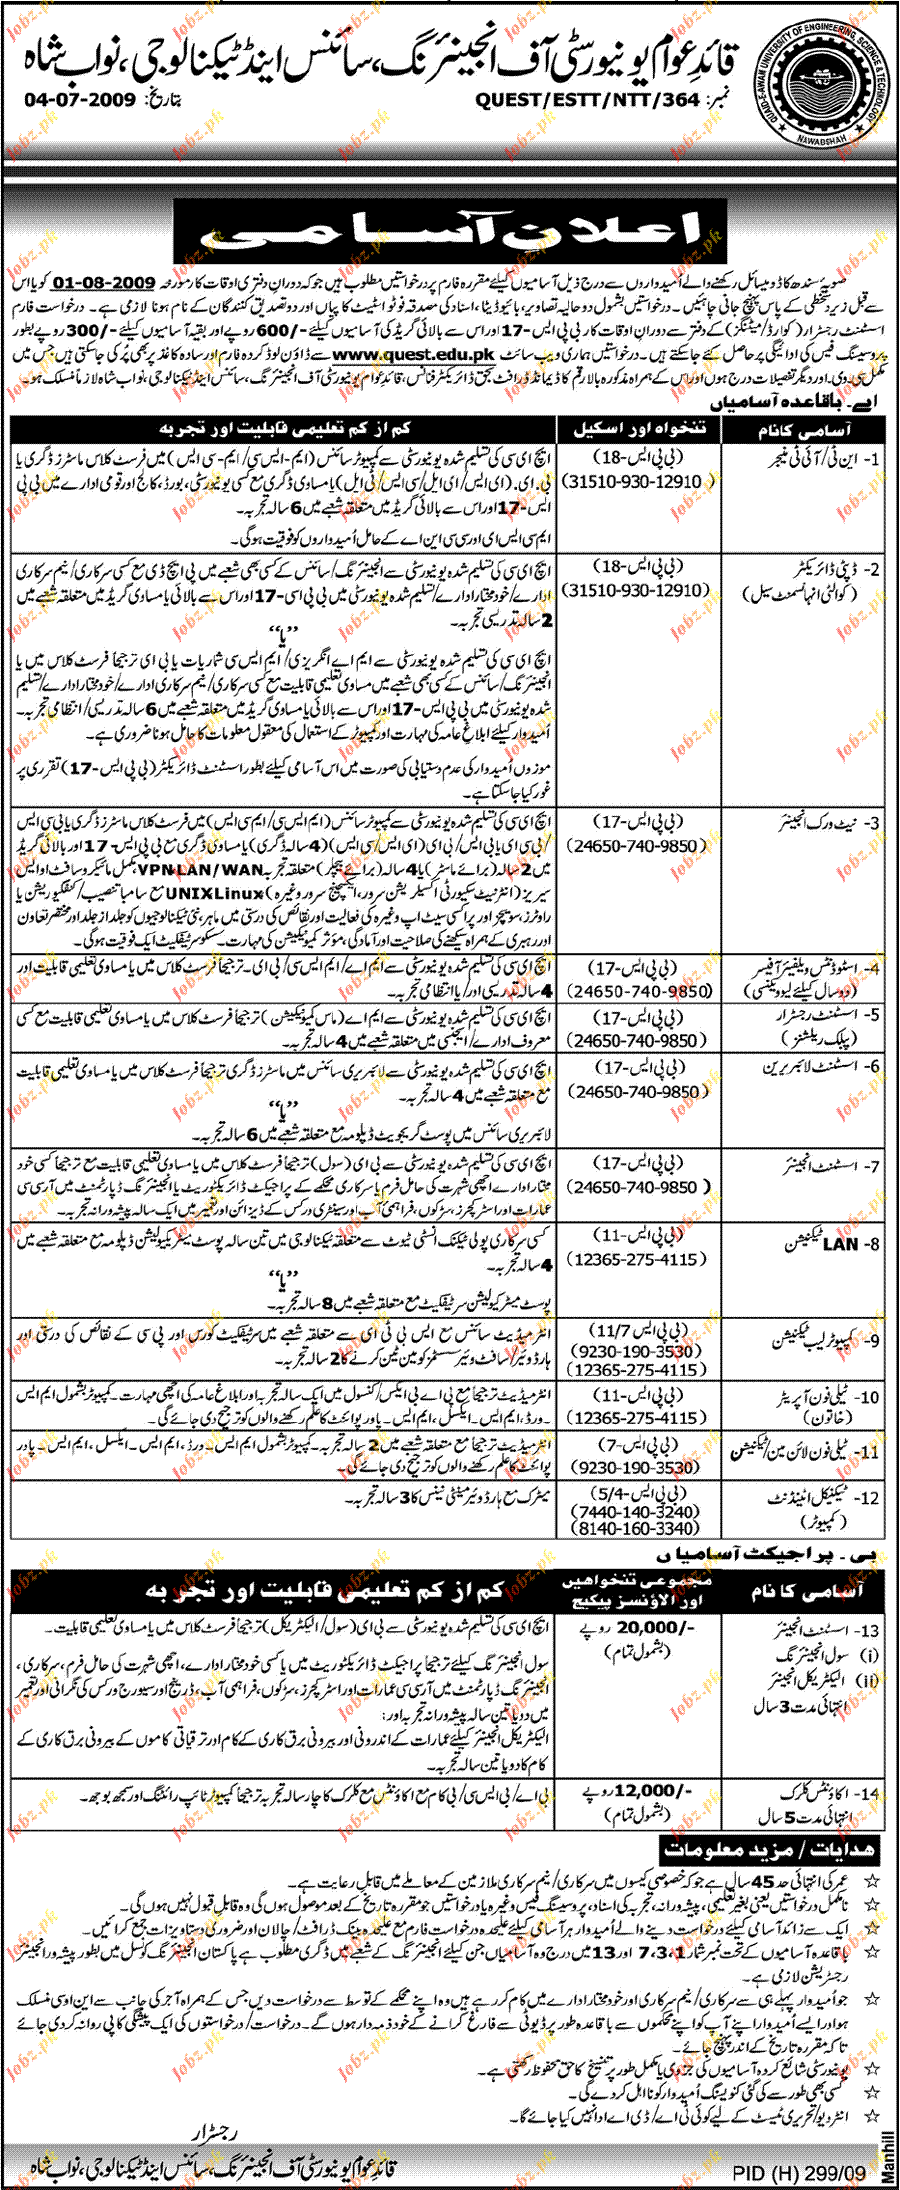 قائدِ عوام یونیورسٹی آف انجینئرنگ، سائنس اینڈ ٹیکنالوجی، نواب شاہ
نمبر: QUEST/ESTT/NTT/364 تاریخ: 04-07-2009
QUAID-E-AWAM UNIVERSITY OF ENGINEERING SCIENCE & TECHNOLOGY
NAWABSHAH
اعلانِ آسامی
صوبہ سندھ کا ڈومیسائل رکھنے والے اُمیدواروں سے درج ذیل آسامیوں کیلئے مقررہ فارم پر درخواستیں مطلوب ہیں جو کہ دورانِ دفتری اوقات کار مورخہ 01-08-2009 کو یا اس
سے قبل زیر دستخطی کے پاس پہنچ جانی چاہئیں۔ درخواستیں بشمول دو حالیہ تصاویر، بائیوڈیٹا، اسناد کی مصدقہ فوٹو اسٹیٹ کاپیاں اور دو تصدیق کنندگان کے نام ہونا لازمی ہے۔ درخواست فارم
اسسٹنٹ رجسٹرار (کوارڈ/میٹنگز) کے دفتر سے دورانِ اوقات کار بی پی ایس-17 اور اس سے بالائی گریڈ کی آسامیوں کیلئے -/600 روپے اور بقیہ آسامیوں کیلئے -/300 روپے بطور
پروسیسنگ فیس کی ادائیگی پر حاصل کئے جاسکتے ہیں۔ درخواستیں ہماری ویب سائٹ www.quest.edu.pk سے ڈاؤن لوڈ کردہ فارم اور سادہ کاغذ پر بھی پُر کی جاسکتی ہیں جس میں
مکمل سی۔وی۔ اور دیگر تفصیلات درج ہوں اور اس کے ہمراہ مذکورہ بالا رقم کا ڈیمانڈ ڈرافٹ بحق ڈائریکٹر فنانس، قائدِ عوام یونیورسٹی آف انجینئرنگ، سائنس اینڈ ٹیکنالوجی، نواب شاہ لازماً منسلک ہو۔
اے۔ باقاعدہ آسامیاں
آسامی کا نام تنخواہ اور اسکیل کم از کم تعلیمی قابلیت اور تجربہ
1- این ٹی/آئی ٹی منیجر
(بی پی ایس-18)
(31510-930-12910)
ایچ ای سی کی تسلیم شدہ یونیورسٹی سے کمپیوٹر سائنس (ایم-ایس سی/ایم-سی ایس) میں فرسٹ کلاس ماسٹرز ڈگری یا
بی۔ای۔ (ای ایس/ای ایل/سی ایس/ٹی ایل) یا مساوی ڈگری مع کسی یونیورسٹی، بورڈ، کالج اور قومی ادارے میں بی پی
ایس-17 اور اس سے بالائی گریڈ میں متعلقہ شعبے میں 6 سالہ تجربہ۔
ایم سی ایس ای اور سی سی این اے کے حامل اُمیدواروں کو فوقیت ہوگی۔
2- ڈپٹی ڈائریکٹر
(کوالٹی انہانسمنٹ سیل)
(بی پی ایس-18)
(31510-930-12910)
ایچ ای سی کی تسلیم شدہ یونیورسٹی سے انجینئرنگ/سائنس کے کسی بھی شعبے میں پی ایچ ڈی مع کسی سرکاری/نیم سرکاری
ادارے/خودمختار ادارے/تسلیم شدہ یونیورسٹی میں بی پی ایس-17 اور اس سے بالائی یا مساوی گریڈ میں متعلقہ شعبے میں
2 سالہ تدریسی تجربہ۔
”یا“
ایچ ای سی کی تسلیم شدہ یونیورسٹی سے ایم اے انگریزی/ایم ایس سی شماریات یا بی ای ترجیحاً فرسٹ کلاس میں یا
انجینئرنگ/سائنس کے کسی بھی شعبے میں مساوی تعلیمی قابلیت مع کسی سرکاری/نیم سرکاری ادارے/خودمختار ادارے/تسلیم
شدہ یونیورسٹی میں بی پی ایس-17 اور اس سے بالائی یا مساوی گریڈ میں متعلقہ شعبے میں 6 سالہ تدریسی/انتظامی تجربہ۔
اُمیدوار کیلئے ابلاغ عامہ کی مہارت اور کمپیوٹر کے استعمال کی معقول معلومات کا حامل ہونا ضروری ہے۔
موزوں اُمیدوار کی عدم دستیابی کی صورت میں اس آسامی کیلئے بطور اسسٹنٹ ڈائریکٹر (بی پی ایس-17) تقرری پر
غور کیا جاسکتا ہے۔
3- نیٹ ورک انجینئر
(بی پی ایس-17)
(24650-740-9850)
ایچ ای سی کی تسلیم شدہ یونیورسٹی سے کمپیوٹر سائنس (ایم ایس سی/ایم سی ایس) میں فرسٹ کلاس ماسٹرز ڈگری یا بی سی ایس
/بی سی ای یا بی ایس/بی ای (ای ایس/سی ایس) (4 سالہ ڈگری) یا مساوی ڈگری مع بی پی ایس-17 اور بالائی گریڈ
میں 2 سالہ (برائے ماسٹر) یا 4 سالہ (برائے بیچلر) متعلقہ تجربہ VPN LAN/WAN، مکمل مائیکروسافٹ او ایس
سیریز (انٹرنیٹ سکیورٹی اکسلریشن سرور، ایکسچینج سرور وغیرہ) UNIX Linux مع سامبا تنصیب/کنفگیوریشن یا
راوٹرز، سوئچز اور پراکسی سیٹ اپ وغیرہ کی فعالیت اور نقائص کی درستی میں ماہر، نئی ٹیکنالوجیوں کو جلد از جلد اور مختصر تعاون
اور رہبری کے ہمراہ سیکھنے کی صلاحیت اور آمادگی، مؤثر کمیونیکیشن کی مہارت۔ سسکو سرٹیفکیٹ ایک فوقیت ہوگی۔
4- اسٹوڈنٹس ویلفیئر آفیسر
(دو سال کیلئے لیو ویکنسی)
(بی پی ایس-17)
(24650-740-9850)
ایچ ای سی کی تسلیم شدہ یونیورسٹی سے ایم اے/ایم ایس سی/بی ای۔ ترجیحاً فرسٹ کلاس میں یا مساوی تعلیمی قابلیت اور
4 سالہ تدریسی اور/یا انتظامی تجربہ۔
5- اسسٹنٹ رجسٹرار
(پبلک ریلشنز)
(بی پی ایس-17)
(24650-740-9850)
ایچ ای سی کی تسلیم شدہ یونیورسٹی سے ایم اے (ماس کمیونیکیشن) ترجیحاً فرسٹ کلاس میں یا مساوی تعلیمی قابلیت مع کسی
معروف ادارے/ایجنسی میں متعلقہ شعبے میں 4 سالہ تجربہ۔
6- اسسٹنٹ لائبریرین
(بی پی ایس-17)
(24650-740-9850)
ایچ ای سی کی تسلیم شدہ یونیورسٹی سے لائبریری سائنس میں ماسٹرز ڈگری ترجیحاً فرسٹ کلاس میں یا مساوی تعلیمی قابلیت
مع متعلقہ شعبے میں 4 سالہ تجربہ۔
”یا“
لائبریری سائنس میں پوسٹ گریجویٹ ڈپلومہ مع متعلقہ شعبے میں 6 سالہ تجربہ۔
7- اسسٹنٹ انجینئر
(بی پی ایس-17)
(24650-740-9850)
ایچ ای سی کی تسلیم شدہ یونیورسٹی سے بی ای (سول) ترجیحاً فرسٹ کلاس میں یا مساوی تعلیمی قابلیت مع ترجیحاً کسی خود
مختار ادارے، اچھی شہرت کی حامل فرم یا سرکاری محکمے کے پراجیکٹ ڈائریکٹوریٹ یا انجینئرنگ ڈپارٹمنٹ میں آر سی سی
عمارات اور اسٹرکچرز، سڑکوں، فراہمی آب اور سینیٹری ورکس کے ڈیزائن اور تعمیر میں ایک سالہ پیشہ ورانہ تجربہ۔
8- LAN ٹیکنیشن
(بی پی ایس-11)
(12365-275-4115)
کسی سرکاری پولی ٹیکنک انسٹی ٹیوٹ سے متعلقہ ٹیکنالوجی میں تین سالہ پوسٹ میٹریکولیشن ڈپلومہ مع متعلقہ شعبے میں
4 سالہ تجربہ۔
”یا“
پوسٹ میٹرکیولیشن سرٹیفکیٹ مع متعلقہ شعبے میں 8 سالہ تجربہ۔
9- کمپیوٹر لیب ٹیکنیشن
(بی پی ایس 11/7)
(9230-190-3530)
(12365-275-4115)
انٹرمیڈیٹ سائنس مع ایس بی ٹی ای سے متعلقہ شعبے میں سرٹیفکیٹ کورس اور پی سی کے نقائص کی درستی اور
ہارڈویئر/سافٹ ویئر سسٹمز کو مین ٹین کرنے کا 2 سالہ تجربہ۔
10- ٹیلی فون آپریٹر
(خاتون)
(بی پی ایس-11)
(12365-275-4115)
انٹرمیڈیٹ ترجیحاً مع پی اے بی ایکس/کنسول میں ایک سالہ تجربہ اور ابلاغ عامہ کی اچھی مہارت۔ کمپیوٹر بشمول ایم ایس
۔ورڈ، ایم ایس۔ ایکسل، ایم ایس۔ پاور پوائنٹ کا علم رکھنے والوں کو ترجیح دی جائے گی۔
11- ٹیلی فون لائن مین/ٹیکنیشن
(بی پی ایس-7)
(9230-190-3530)
انٹرمیڈیٹ ترجیحاً مع متعلقہ شعبے میں 2 سالہ تجربہ۔ کمپیوٹر بشمول ایم ایس۔ ورڈ، ایم ایس۔ ایکسل، ایم ایس۔ پاور
پوائنٹ کا علم رکھنے والوں کو ترجیح دی جائے گی۔
12- ٹیکنیکل اٹینڈنٹ
(کمپیوٹر)
(بی پی ایس-5/4)
(7440-140-3240)
(8140-160-3340)
میٹرک مع ہارڈویئر مینٹی نینس کا 3 سالہ تجربہ۔
بی۔ پراجیکٹ آسامیاں
آسامی کا نام مجموعی تنخواہیں اور الاؤنسز پیکیج کم از کم تعلیمی قابلیت اور تجربہ
13- اسسٹنٹ انجینئر
(i) سول انجینئرنگ
(ii) الیکٹریکل انجینئر
انتہائی مدت 3 سال
-/20,000 روپے
(بشمول تمام)
ایچ ای سی کی تسلیم شدہ یونیورسٹی سے بی ای (سول/الیکٹریکل) ترجیحاً فرسٹ کلاس میں یا مساوی تعلیمی قابلیت۔
سول انجینئرنگ کیلئے ترجیحاً پراجیکٹ ڈائریکٹوریٹ میں یا کسی خودمختار ادارے، اچھی شہرت کی حامل فرم، سرکاری،
انجینئرنگ ڈپارٹمنٹ میں آر سی سی عمارات اور اسٹرکچرز، سڑکوں، فراہمی آب، ڈرینج اور سیوریج ورکس کی نگرانی اور تعمیر
میں دو یا تین سالہ پیشہ ورانہ تجربہ اور:
الیکٹریکل انجینئر کیلئے عمارات کے اندرونی اور بیرونی برق کاری کے کام اور ترقیاتی کاموں کے بیرونی برق کاری کے
کام کا دو یا تین سالہ تجربہ۔
14- اکاؤنٹس کلرک
انتہائی مدت 5 سال
-/12,000 روپے
(بشمول تمام)
بی اے/بی ایس سی/بی کام مع اکاؤنٹس مع کلرک کا چار سالہ تجربہ ترجیحاً کمپیوٹر ٹائپ رائٹنگ اور سمجھ بوجھ۔
ہدایات / مزید معلومات
☆ عمر کی انتہائی حد 45 سال ہے جو کہ خصوصی کیسوں میں سرکاری/نیم سرکاری ملازمین کے معاملے میں قابلِ رعایت ہے۔
☆ نامکمل درخواستیں یعنی بغیر تعلیمی، پیشہ ورانہ، تجربہ کی اسناد، پروسیسنگ فیس وغیرہ یا درخواستیں جو مقررہ تاریخ کے بعد موصول ہوں گی وہ قابل قبول نہیں ہوں گی۔
☆ ایک سے زائد آسامی کیلئے درخواست دینے والے اُمیدوار ہر آسامی کیلئے علیحدہ درخواست فارم مع علیحدہ بینک ڈرافٹ/چالان اور ضروری دستاویزات جمع کرائیں۔
☆ باقاعدہ آسامیوں کے تحت نمبر شمار 1، 3، 7 اور 13 میں درج وہ آسامیاں جن کیلئے انجینئرنگ کے شعبے میں ڈگری مطلوب ہے پاکستان انجینئرنگ کونسل میں بطور پیشہ ور انجینئر
رجسٹریشن لازمی ہے۔
☆ جو اُمیدوار پہلے ہی سے سرکاری/نیم سرکاری اور خودمختار ادارے میں کام کررہے ہیں وہ اپنے محکمے کے توسط سے درخواست دیں جس کے ہمراہ آجر کی جانب سے این او سی منسلک
ہو اور ایسے اُمیدوار اپنے آپ کو اپنے محکموں سے باقاعدہ طور پر ڈیوٹی سے فارغ کرانے کے خود ذمہ دار ہوں گے۔ درخواست/درخواستوں کی ایک پیشگی کاپی روانہ کردی جائے
تاکہ مقررہ تاریخ کے اندر پہنچ جائے۔
☆ یونیورسٹی شائع کردہ آسامیوں کی جزوی یا مکمل طور پر تنسیخ کا حق محفوظ رکھتی ہے۔
☆ کسی بھی طور سے کی گئی کنویسنگ اُمیدوار کو نااہل کردے گی۔
☆ انٹرویو/تحریری ٹیسٹ کے لیے کوئی ٹی اے/ڈی اے ادا نہیں کیا جائے گا۔
رجسٹرار
قائدِ عوام یونیورسٹی آف انجینئرنگ، سائنس اینڈ ٹیکنالوجی، نواب شاہ
PID (H) 299/09
Manhill
Jobz.pk